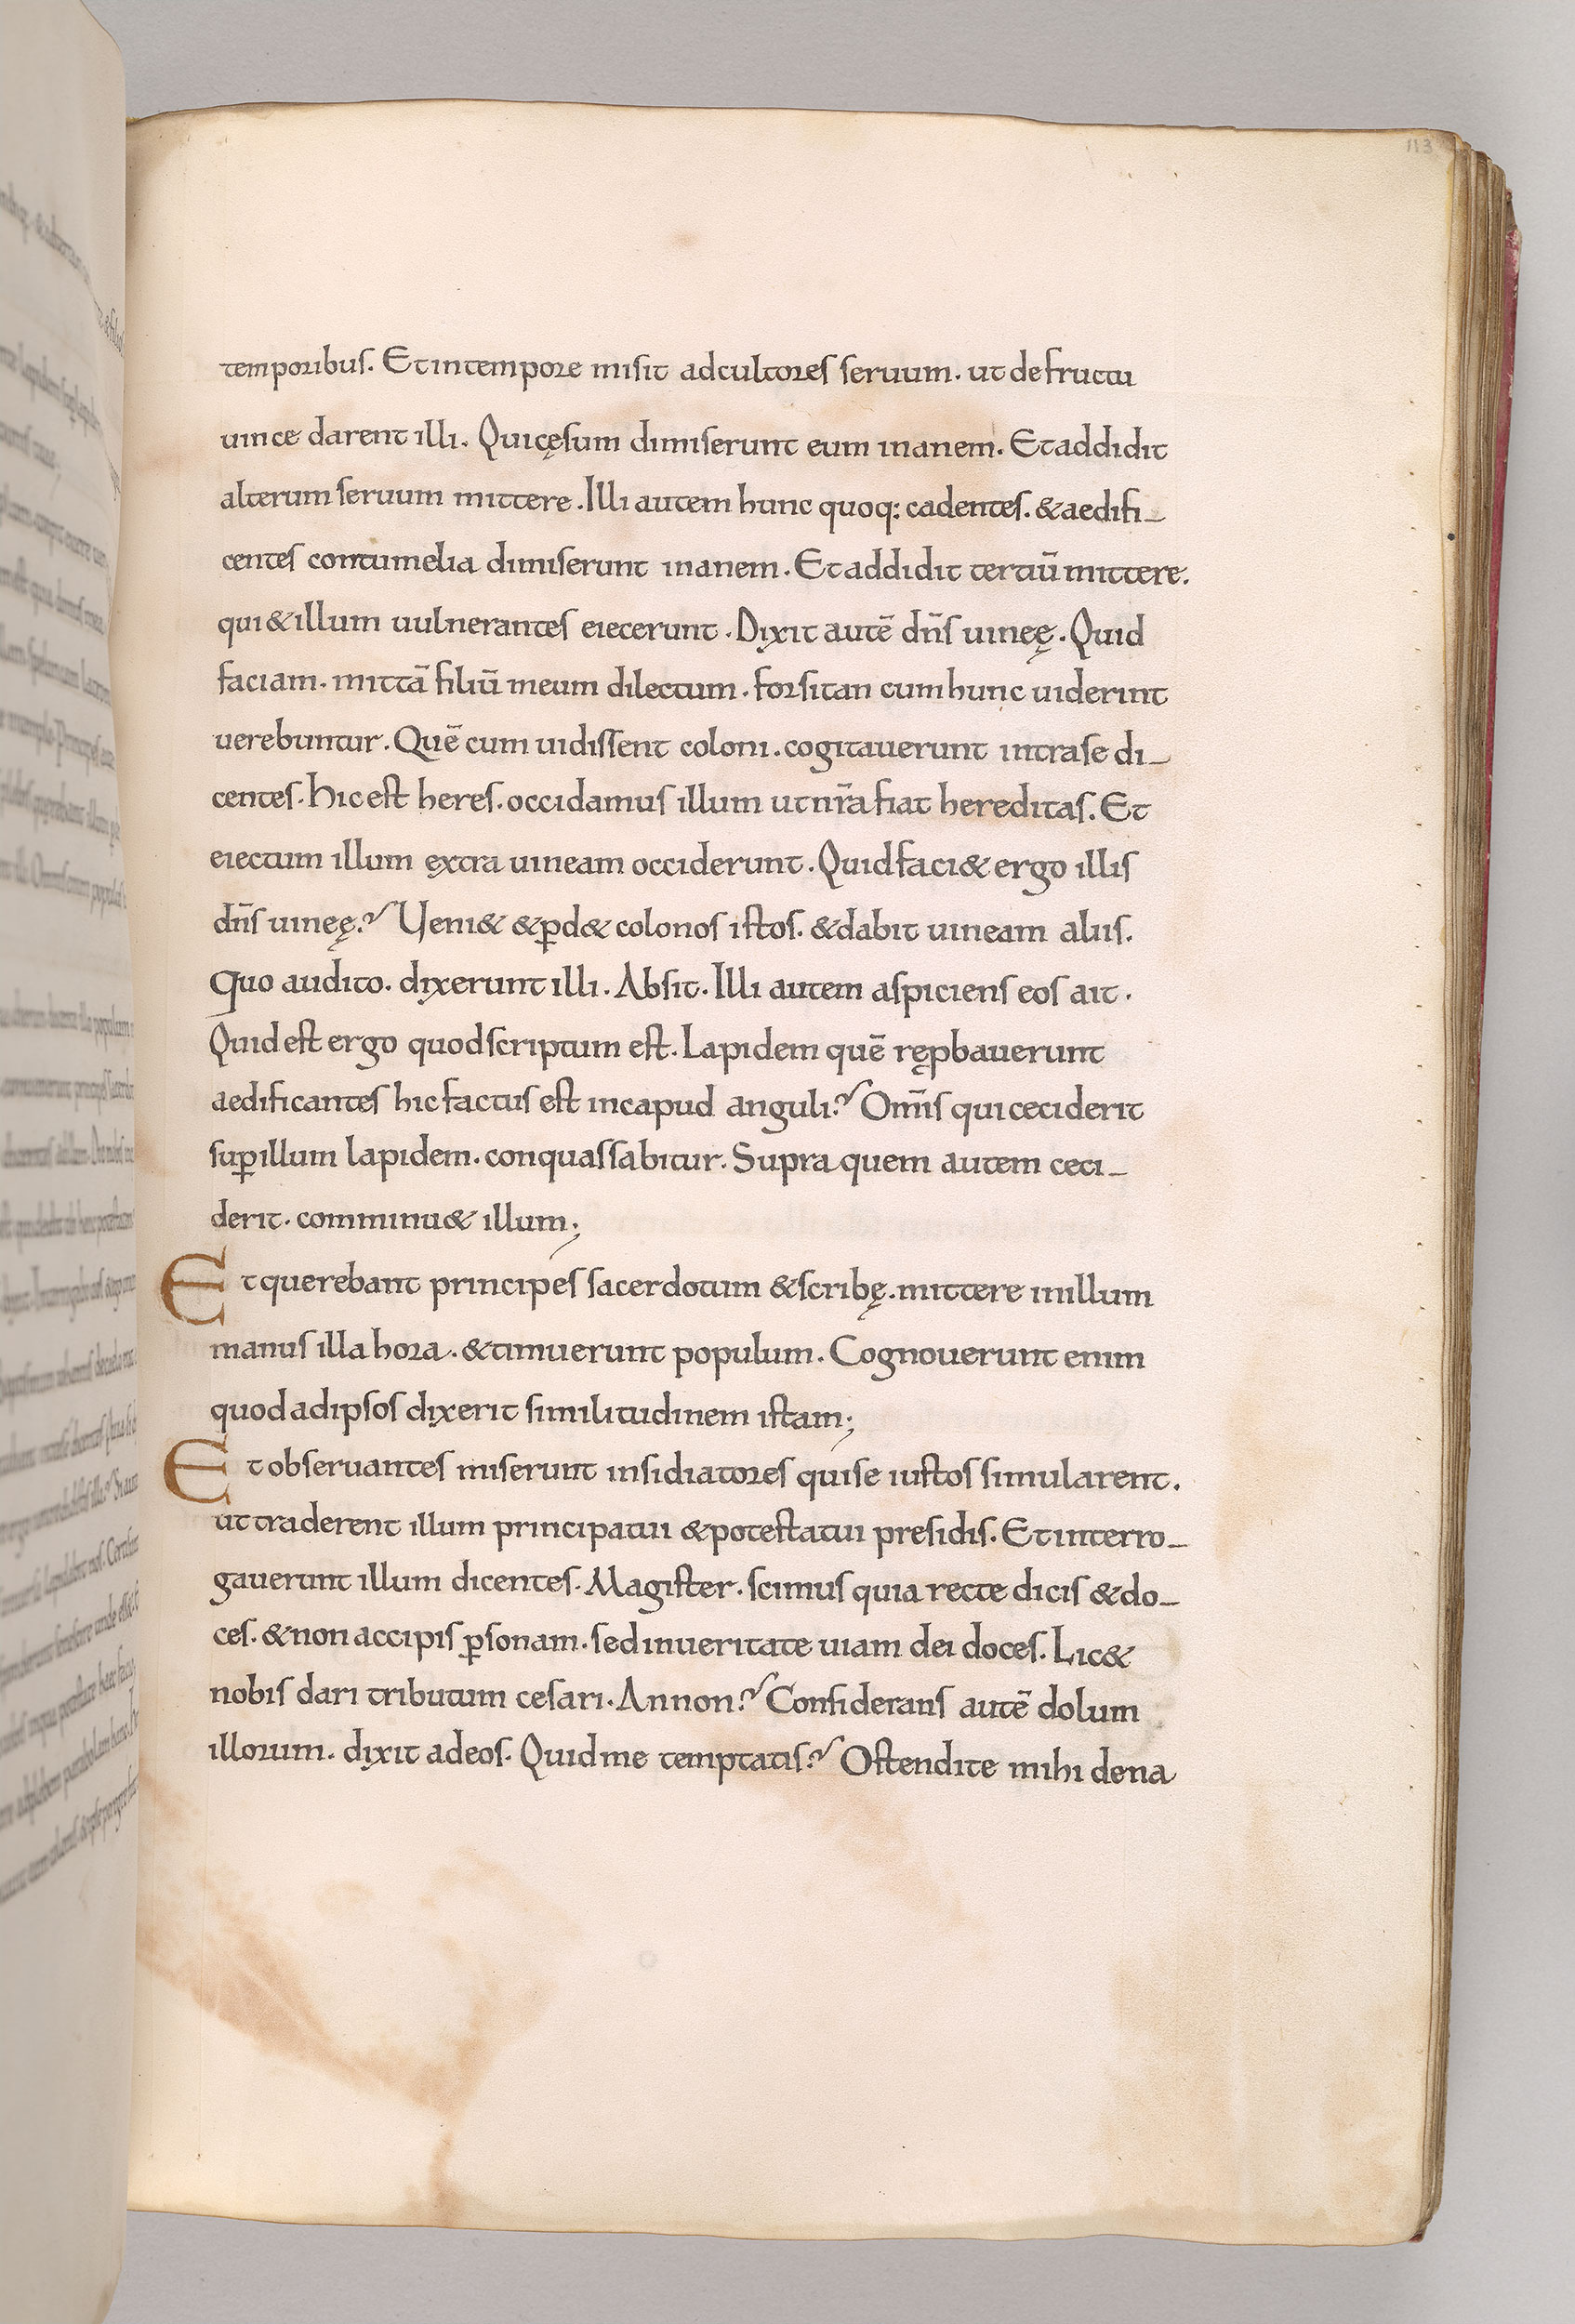 113
temporibus. Et in tempore misit ad cultores seruum. ut de fructu
uinee darent illi. Qui cęsum dimiserunt eum inanem. Et addidit
alterum seruum mittere. Illi autem hunc quoq: cadentes. & aedifi_
centes contumelia dimiserunt inanem. Et addidit tertiū mittere.
qui & illum uulnerantes eiecerunt. Dixit autē dn̄s uineę. Quid
faciam. mittā filiū meum dilectum. forsitan cum hunc uiderint
uerebuntur. Quē cum uidissent coloni. cogitauerunt intra se di_
centes. hic est heres. occidamus illum ut nr̄a fiat hereditas. Et
eiectum illum extra uineam occiderunt. Quid faci& ergo illis
dn̄s uineę? Ueni& & ꝑd& colonos istos. & dabit uineam aliis.
Quo audito. dixerunt illi. Absit. Illi autem aspiciens eos ait.
Quid est ergo quod scriptum est. Lapidem quē rępbauerunt
aedificantes hic factus est in capud anguli? Om̄is qui ceciderit
suꝑ illum lapidem. conquassabitur. Supra quem autem ceci_
derit. comminu& illum;
Et querebant principes sacerdotum & scribę. mittere in illum
manus illa hora. & timuerunt populum. Cognouerunt enim
quod ad ipsos dixerit similitudinem istam;
Et obseruantes miserunt insidiatores qui se iustos simularent.
ut traderent illum principatui & potestatui presidis. Et interro_
gauerunt illum dicentes. Magister. scimus quia recte dicis & do_
ces. & non accipis ꝑsonam. sed in ueritate uiam dei doces. Lic&
nobis dari tributum cesari. An non? Considerans autē dolum
illorum. dixit ad eos. Quid me temptatis? Ostendite mihi dena